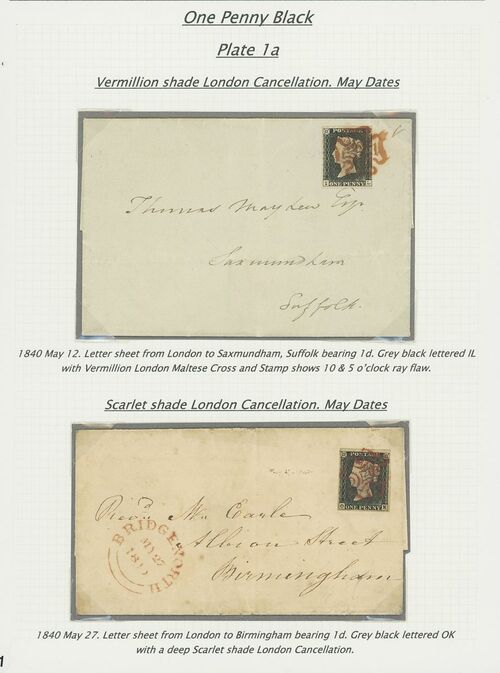 One Penny Black
Plate 1a
Vermillion shade London Cancellation. May Dates
POSTAGE
I L
ONE PENNY
Thomas Mayhew Esq
Saxmundham
Suffolk.
1840 May 12. Letter sheet from London to Saxmundham, Suffolk bearing 1d. Grey black lettered IL
with Vermillion London Maltese Cross and Stamp shows 10 & 5 o'clock ray flaw.
Scarlet shade London Cancellation. May Dates
POSTAGE
O K
ONE PENNY
Revd. Mr. Earle
Albion Street
Birmingham
BRIDGENORTH
MY 27
1840
1840 May 27. Letter sheet from London to Birmingham bearing 1d. Grey black lettered OK
with a deep Scarlet shade London Cancellation.
1